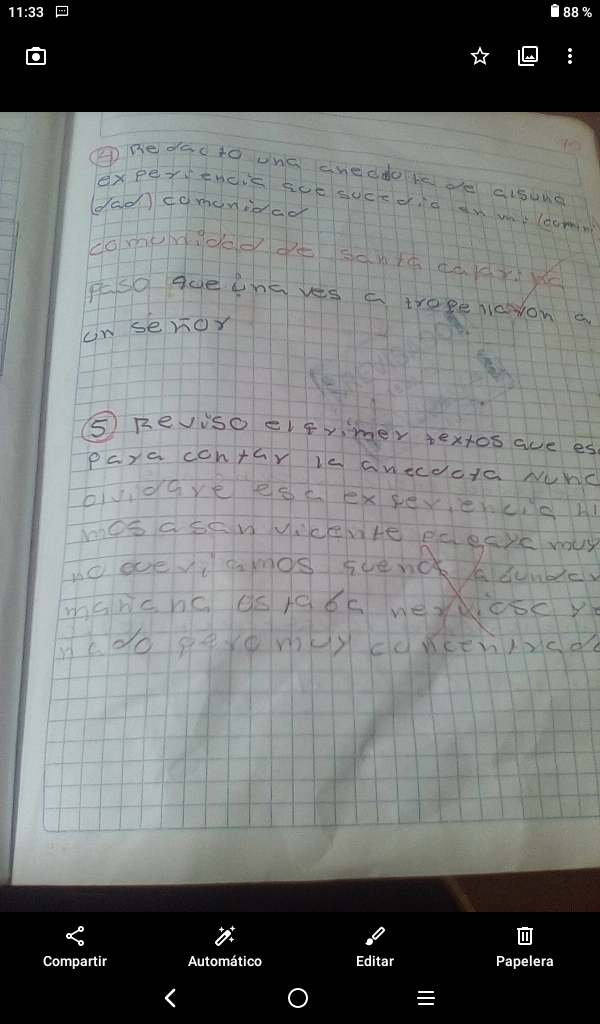 11:33
88 %
10
4 Redacto una anecdota de alguna
experiencia que sucedio an mi (comuni
dad) comunidad
comunidad de santa catarina
Paso que una ves a tropellaron a
un señor
5 Reviso el primer textos que es
para contar la anecdota Nunc
olvidare esa experiencia
mos a san vicente muy
no
mañana estaba nerviosc y
nado pero muy concentrado
Compartir
Automático
Editar
Papelera